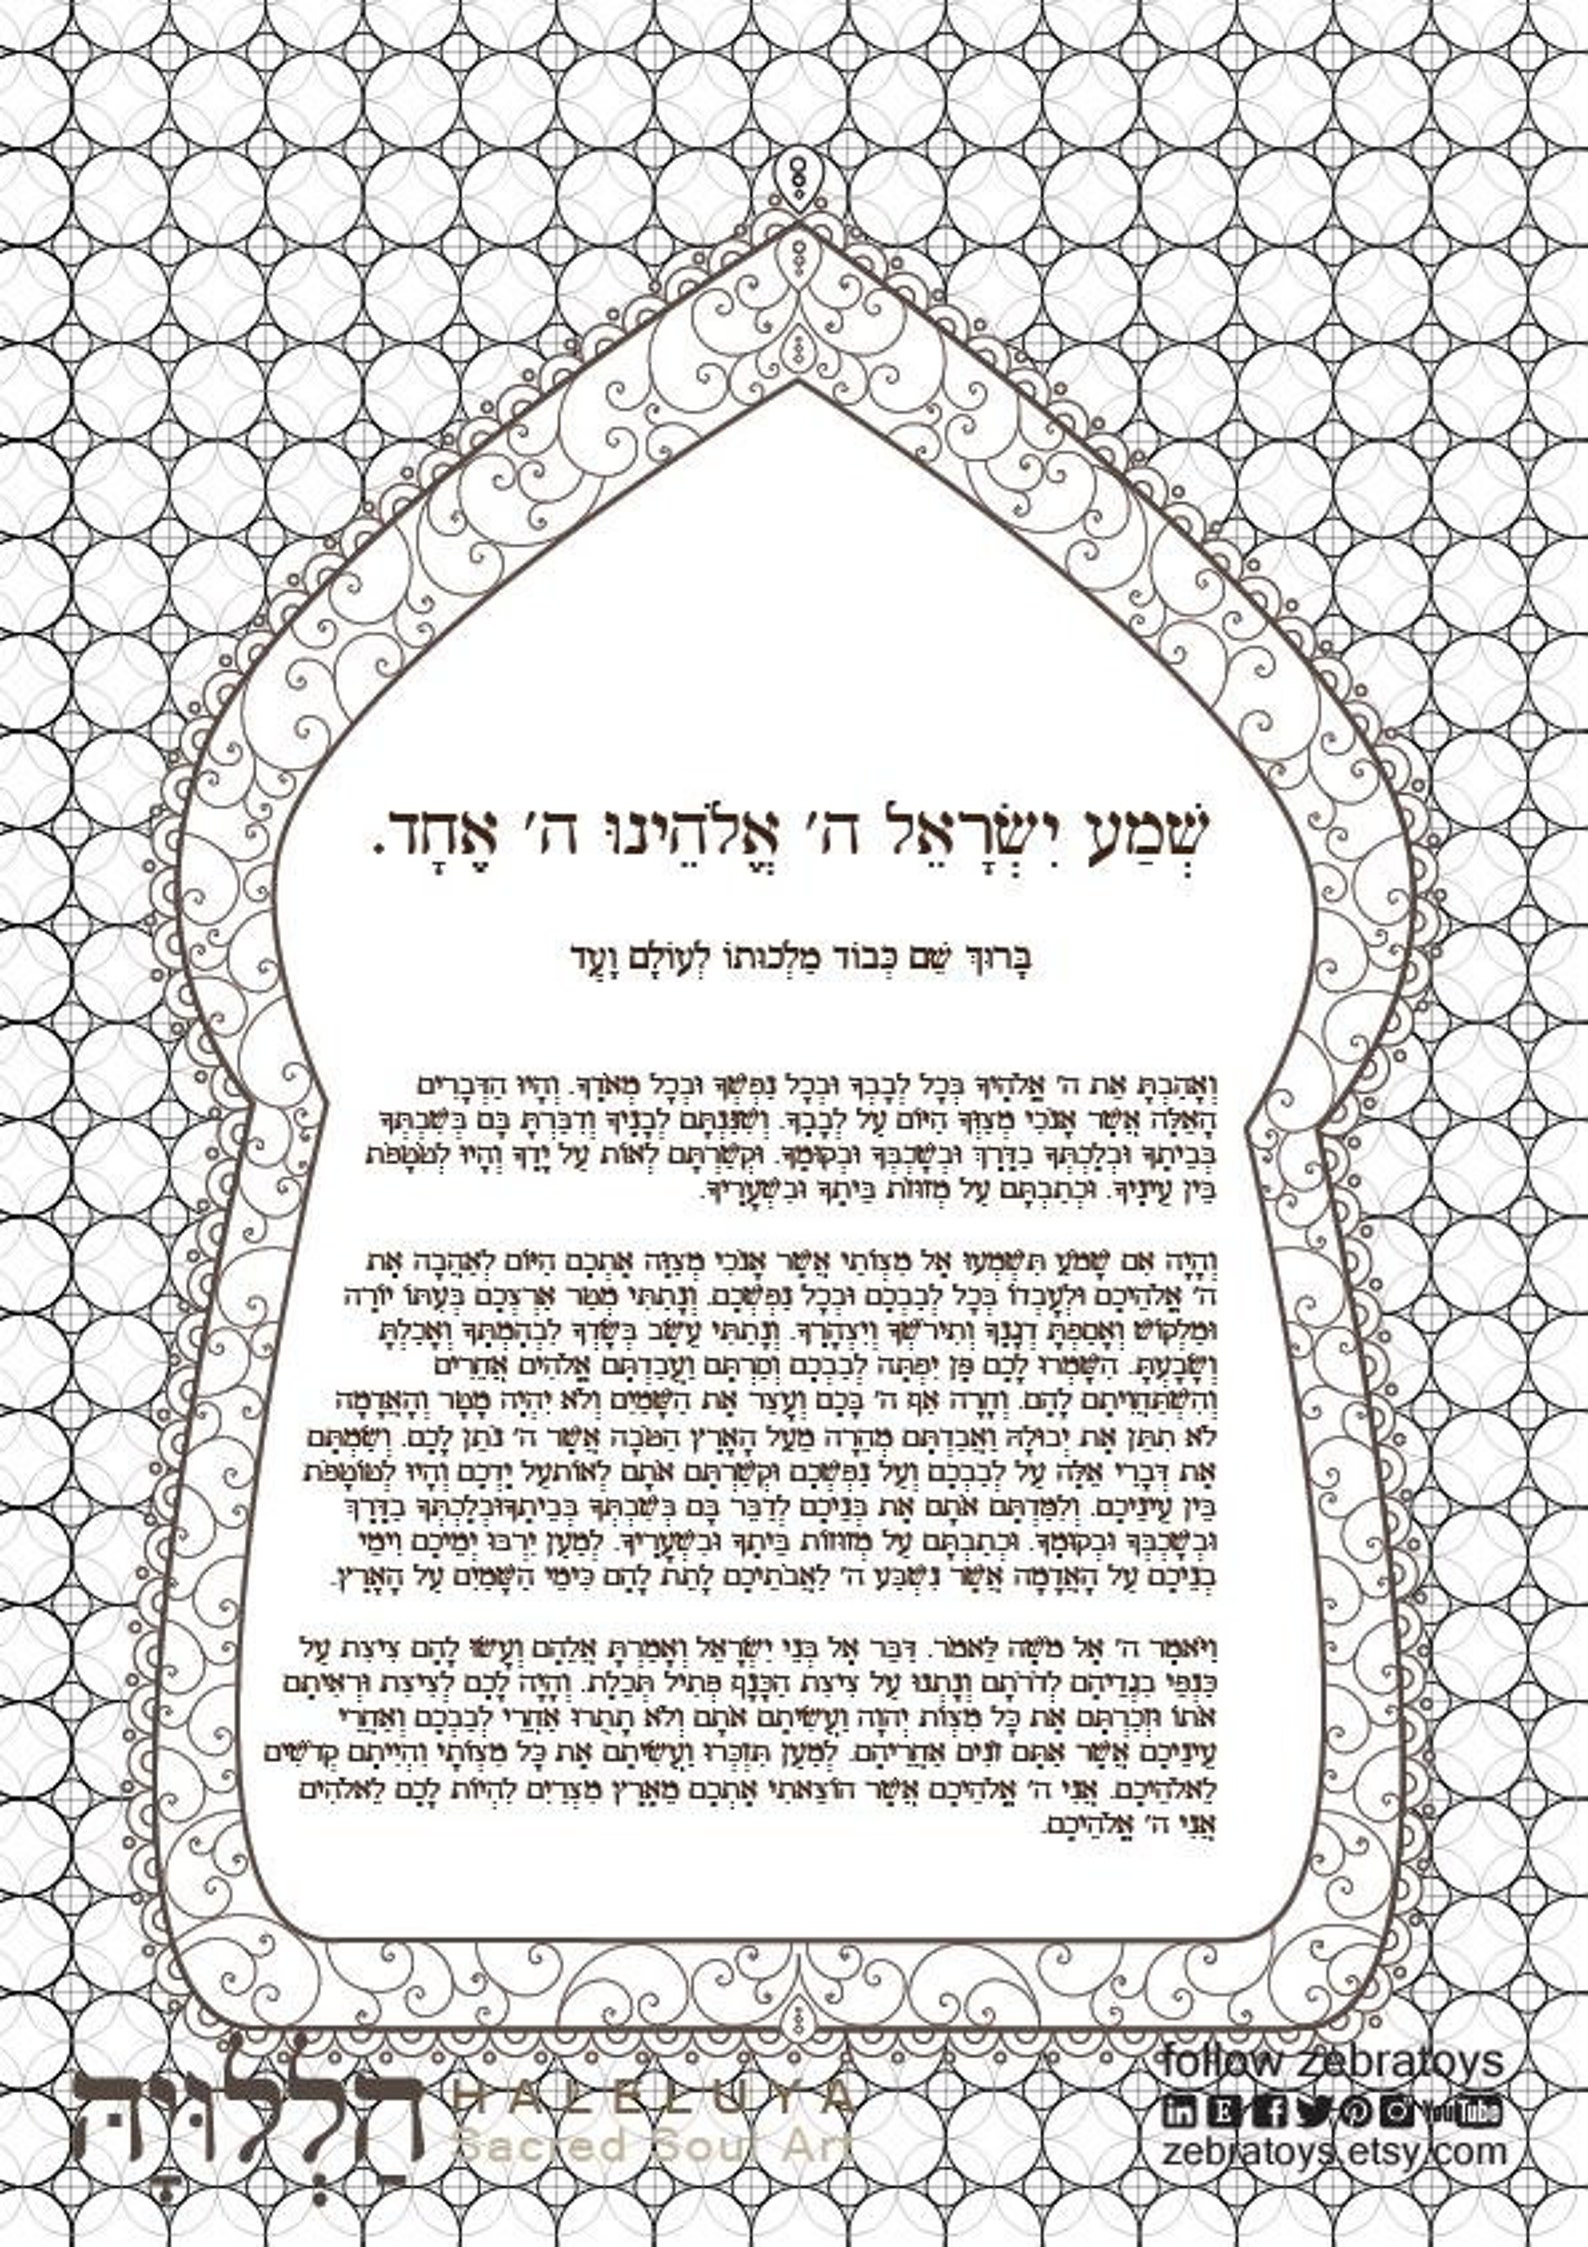 שְׁמַע יִשְׂרָאֵל ה' אֱלֹהֵינוּ ה' אֶחָד.
בָּרוּךְ שֵׁם כְּבוֹד מַלְכוּתוֹ לְעוֹלָם וָעֶד
וְאָהַבְתָּ אֵת ה' אֱלֹהֶיךָ בְּכָל לְבָבְךָ וּבְכָל נַפְשְׁךָ וּבְכָל מְאֹדֶךָ. וְהָיוּ הַדְּבָרִים
הָאֵלֶּה אֲשֶׁר אָנֹכִי מְצַוְּךָ הַיּוֹם עַל לְבָבֶךָ. וְשִׁנַּנְתָּם לְבָנֶיךָ וְדִבַּרְתָּ בָּם בְּשִׁבְתְּךָ
בְּבֵיתֶךָ וּבְלֶכְתְּךָ בַדֶּרֶךְ וּבְשָׁכְבְּךָ וּבְקוּמֶךָ. וּקְשַׁרְתָּם לְאוֹת עַל יָדֶךָ וְהָיוּ לְטֹטָפֹת
בֵּין עֵינֶיךָ. וּכְתַבְתָּם עַל מְזוּזֹת בֵּיתֶךָ וּבִשְׁעָרֶיךָ.
וְהָיָה אִם שָׁמֹעַ תִּשְׁמְעוּ אֶל מִצְוֹתַי אֲשֶׁר אָנֹכִי מְצַוֶּה אֶתְכֶם הַיּוֹם לְאַהֲבָה אֶת
ה' אֱלֹהֵיכֶם וּלְעָבְדוֹ בְּכָל לְבַבְכֶם וּבְכָל נַפְשְׁכֶם. וְנָתַתִּי מְטַר אַרְצְכֶם בְּעִתּוֹ יוֹרֶה
וּמַלְקוֹשׁ וְאָסַפְתָּ דְגָנֶךָ וְתִירֹשְׁךָ וְיִצְהָרֶךָ. וְנָתַתִּי עֵשֶׂב בְּשָׂדְךָ לִבְהֶמְתֶּךָ וְאָכַלְתָּ
וְשָׂבָעְתָּ. הִשָּׁמְרוּ לָכֶם פֶּן יִפְתֶּה לְבַבְכֶם וְסַרְתֶּם וַעֲבַדְתֶּם אֱלֹהִים אֲחֵרִים
וְהִשְׁתַּחֲוִיתֶם לָהֶם. וְחָרָה אַף ה' בָּכֶם וְעָצַר אֶת הַשָּׁמַיִם וְלֹא יִהְיֶה מָטָר וְהָאֲדָמָה
לֹא תִתֵּן אֶת יְבוּלָהּ וַאֲבַדְתֶּם מְהֵרָה מֵעַל הָאָרֶץ הַטֹּבָה אֲשֶׁר ה' נֹתֵן לָכֶם. וְשַׂמְתֶּם
אֶת דְּבָרַי אֵלֶּה עַל לְבַבְכֶם וְעַל נַפְשְׁכֶם וּקְשַׁרְתֶּם אֹתָם לְאוֹתעַל יֶדְכֶם וְהָיוּ לְטוֹטָפֹת
בֵּין עֵינֵיכֶם. וְלִמַּדְתֶּם אֹתָם אֶת בְּנֵיכֶם לְדַבֵּר בָּם בְּשִׁבְתְּךָ בְּבֵיתֶךָוּבְלֶכְתְּךָ בַדֶּרֶךְ
וּבְשָׁכְבְּךָ וּבְקוּמֶךָ. וּכְתַבְתָּם עַל מְזוּזוֹת בֵּיתֶךָ וּבִשְׁעָרֶיךָ. לְמַעַן יִרְבּוּ יְמֵיכֶם וִימֵי
בְנֵיכֶם עַל הָאֲדָמָה אֲשֶׁר נִשְׁבַּע ה' לַאֲבֹתֵיכֶם לָתֵת לָהֶם כִּימֵי הַשָּׁמַיִם עַל הָאָרֶץ.
וַיֹּאמֶר ה' אֶל מֹשֶׁה לֵּאמֹר. דַּבֵּר אֶל בְּנֵי יִשְׂרָאֵל וְאָמַרְתָּ אֲלֵהֶם וְעָשׂוּ לָהֶם צִיצִת עַל
כַּנְפֵי בִגְדֵיהֶם לְדֹרֹתָם וְנָתְנוּ עַל צִיצִת הַכָּנָף פְּתִיל תְּכֵלֶת. וְהָיָה לָכֶם לְצִיצִת וּרְאִיתֶם
אֹתוֹ וּזְכַרְתֶּם אֶת כָּל מִצְוֹת יְהוָה וַעֲשִׂיתֶם אֹתָם וְלֹא תָתֻרוּ אַחֲרֵי לְבַבְכֶם וְאַחֲרֵי
עֵינֵיכֶם אֲשֶׁר אַתֶּם זֹנִים אַחֲרֵיהֶם. לְמַעַן תִּזְכְּרוּ וַעֲשִׂיתֶם אֶת כָּל מִצְוֹתָי וִהְיִיתֶם קְדֹשִׁים
לֵאלֹהֵיכֶם. אֲנִי ה' אֱלֹהֵיכֶם אֲשֶׁר הוֹצֵאתִי אֶתְכֶם מֵאֶרֶץ מִצְרַיִם לִהְיוֹת לָכֶם לֵאלֹהִים
אֲנִי ה' אֱלֹהֵיכֶם.
הַלְלוּיָהּ
HALELUYA
Sacred Soul Art
follow zebratoys
YouTube
zebratoys.etsy.com